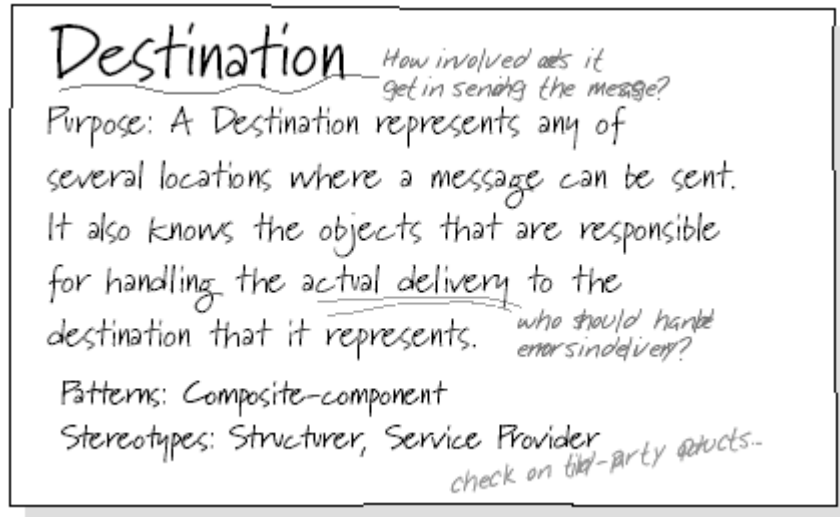 Destination
How involved does it
get in sending the message?
Purpose: A Destination represents any of
several locations where a message can be sent.
It also knows the objects that are responsible
for handling the actual delivery to the
destination that it represents.
who should handle
errors in delivery?
Patterns: Composite-component
Stereotypes: Structurer, Service Provider
check on third-party products...